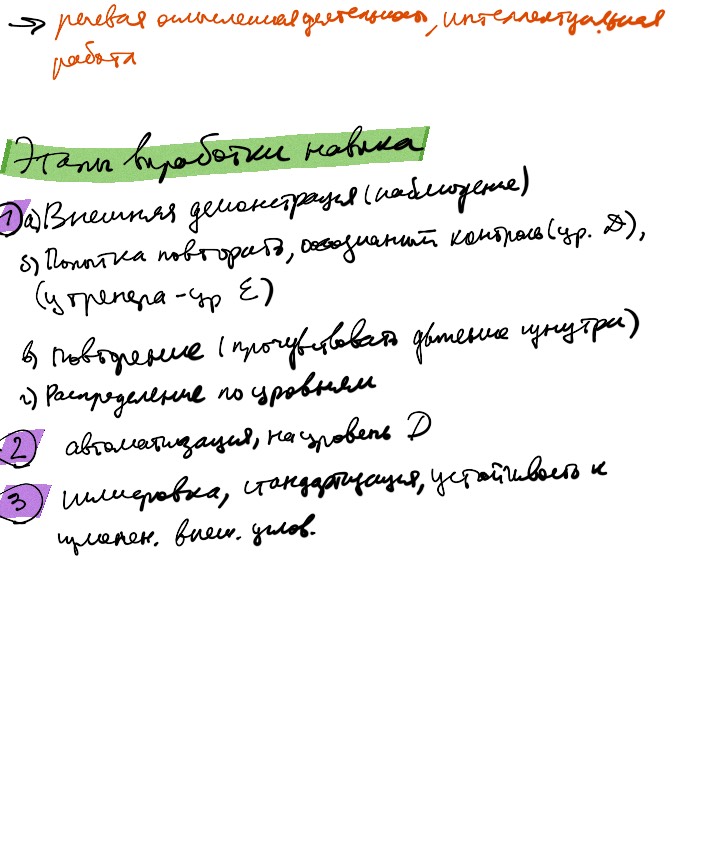 → речевая осмысленная деятельность, интеллектуальная
работа
Этапы выработки навыка
1 а) Внешняя демонстрация (наблюдение)
б) Попытка повторить, осознаный контроль (ур. D),
(у тренера - ур E)
в) Повторение (прочувствовать движение изнутри)
г) Распределение по уровням
2 автоматизация, на уровень D
3 шлифовка, стандартизация, устойчивость к
изменен. внеш. услов.